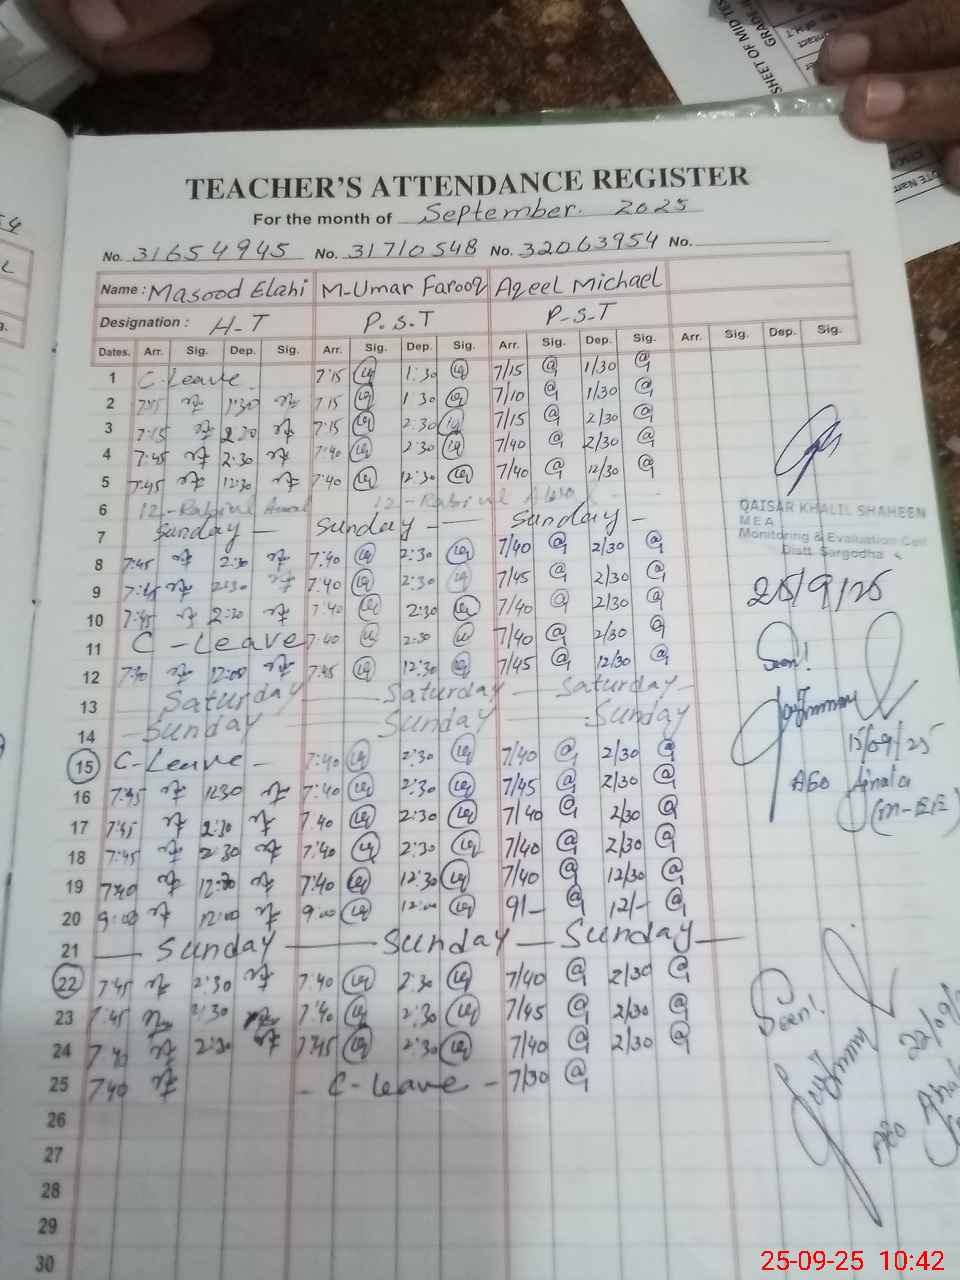 SHEET OF MID TES
GRADE
TEACHER'S ATTENDANCE REGISTER
For the month of September. 2025
No. 31654945 No. 31710548 No. 32063954 No.
Name: Masood Elahi M-Umar Farooq Aqeel Michael
Designation: H-T P.S.T P-S-T
Dates. Arr. Sig. Dep. Sig. Arr. Sig. Dep. Sig. Arr. Sig. Dep. Sig. Arr. Sig. Dep. Sig.
1 C-Leave 7:15 1:30 7/15 1/30
2 7:15 1:30 7:15 1:30 7/10 1/30
3 7:15 2:30 7:15 2:30 7/15 2/30
4 7:45 2:30 7:40 2:30 7/40 2/30
5 7:45 12:30 7:40 12:30 7/40 12/30
6 12-Rabiul Awal 12-Rabiul
7 Sunday — Sunday — Sunday -
8 7:45 2:30 7:40 2:30 7/40 2/30
9 7:45 2:30 7:40 2:30 7/45 2/30
10 7:45 2:30 7:40 2:30 7/40 2/30
11 C-Leave 7:40 2:30 7/40 2/30
12 7:40 12:00 7:45 12:30 7/45 12/30
13 Saturday — Saturday — Saturday -
14 Sunday Sunday Sunday
15 C-Leave - 7:40 2:30 7/40 2/30
16 7:45 7:40 2:30 7/45 2/30
17 7:45 2:30 7:40 2:30 7/40 2/30
18 7:45 2:30 7:40 2:30 7/40 2/30
19 7:40 12:30 7:40 12:30 7/40 12/30
20 9:00 12:00 9:00 12:00 9/- 12/-
21 — Sunday — Sunday — Sunday —
22 7:45 2:30 7:40 2:30 7/40 2/30
23 7:45 2:30 7:40 2:30 7/45 2/30
24 7:40 2:30 7:45 2:30 7/40 2/30
25 7:40 - C-Leave - 7/30
26
27
28
29
30
QAISAR KHALIL SHAHEEN
MEA
Monitoring & Evaluation Cell
Distt. Sargodha
25/9/25
Seen!
15/09/25
AEO Ajnala
(M-EE)
Seen!
22/09
AEO
25-09-25 10:42